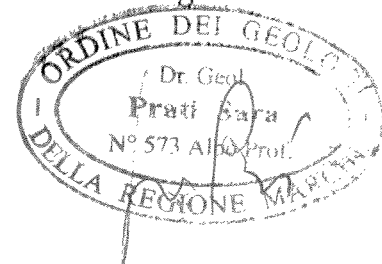 ORDINE DEI GEOLOGI
Dr. Geol.
Prati Sara
N° 573 Albo Prof.
DELLA REGIONE MARCHE